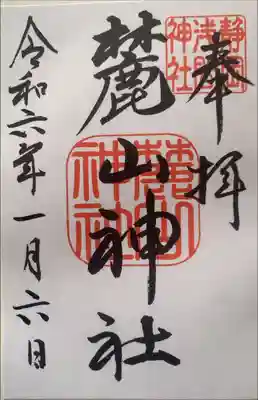 奉拝
静岡浅間神社
麓山神社
麓山神社
令和六年一月六日